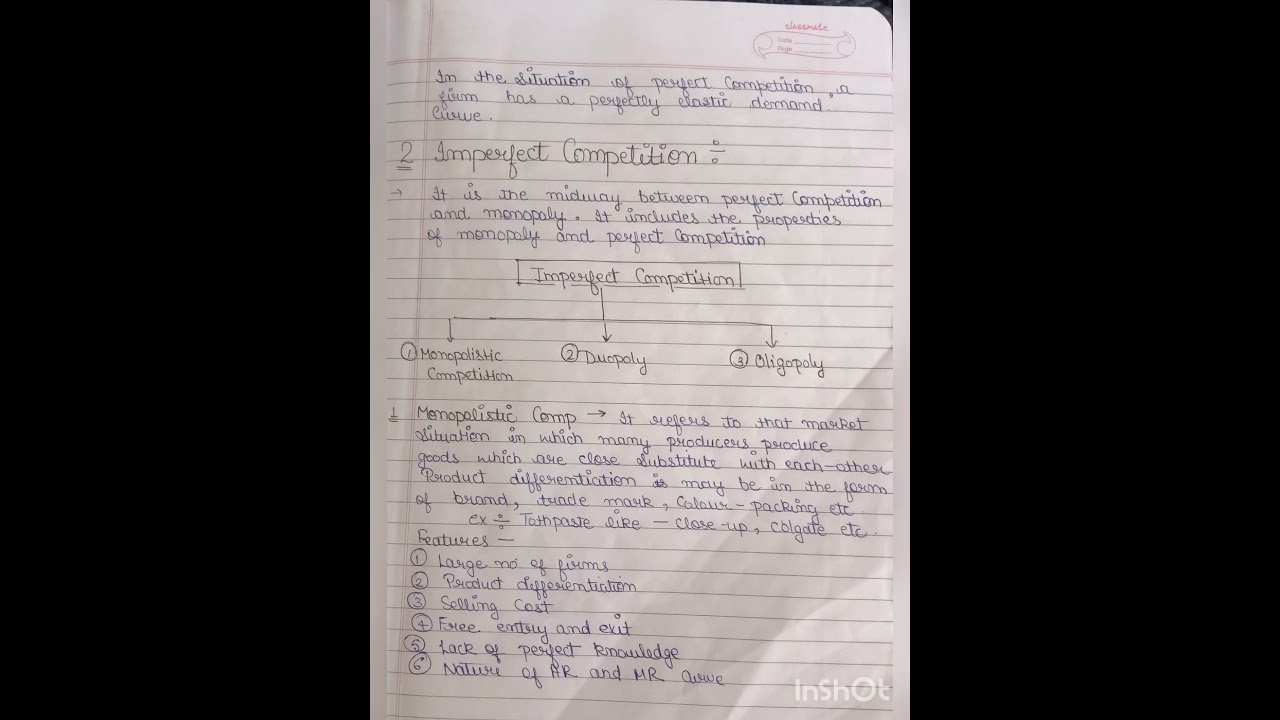 classmate
Date
Page
In the situation of perfect Competition, a
firm has a perfectly elastic demand.
Curve.
2 Imperfect Competition ÷
→ It is the midway between perfect Competition
and monopoly. It includes the properties
of monopoly and perfect Competition
Imperfect Competition
① Monopolistic Competition ② Duopoly ③ Oligopoly
1 Monopolistic Comp → It refers to that market
situation in which many producers produce
goods which are close substitute with each-other
Product differentiction may be in the form
of brand, trade mark, Colour-packing etc
ex ÷ Tothpaste like — close-up, Colgate etc.
Features —
① Large no of firms
② Product differentiation
③ Selling Cost
④ Free entry and exit
⑤ Lack of perfect knowledge
⑥ Nature of AR and MR Curve
InShOt